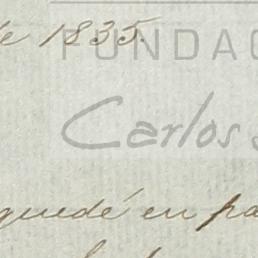 de 1835.
FUNDAC
Carlos
quedé en pa